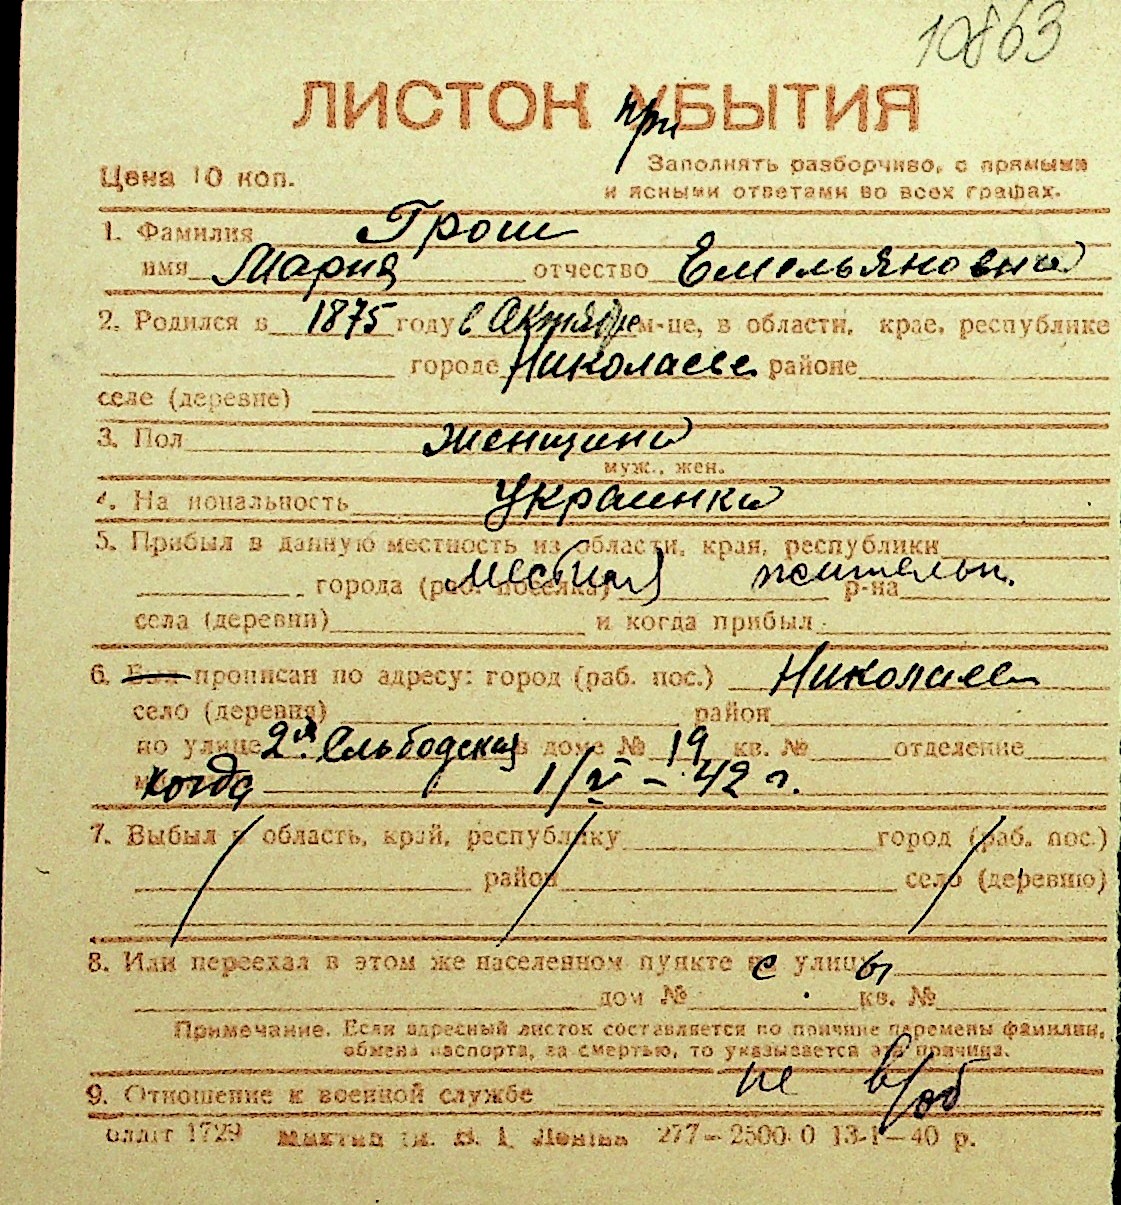 10863
ЛИСТОК при УБЫТИЯ
Цена 10 коп.
Заполнять разборчиво, с прямыми
и ясными ответами во всех графах.
1. Фамилия Грош
имя Мария отчество Емельяновна
2. Родился в 1875 году в Октябре м-це, в области, крае, республике
городе Николаеве районе
селе (деревне)
3. Пол женщина
муж., жен.
4. На иональность Украинка
5. Прибыл в данную местность из области, края, республики
города (раб. поселка) местная жительн. р-на
села (деревни) и когда прибыл
6. Был прописан по адресу: город (раб. пос.) Николаев
село (деревня) район
по улице 2я Слободская в доме № 19 кв. № отделение
когда 1/V - 42 г.
7. Выбыл в область, край, республику город (раб. пос.)
район село (деревню)
8. Или переехал в этом же населенном пункте с улицы
дом № кв. №
Примечание. Если адресный листок составляется по причине перемены фамилии,
обмена паспорта, за смертью, то указывается эта причина.
9. Отношение к военной службе не в/об
1729 277-2500.0 13-I-40 р.